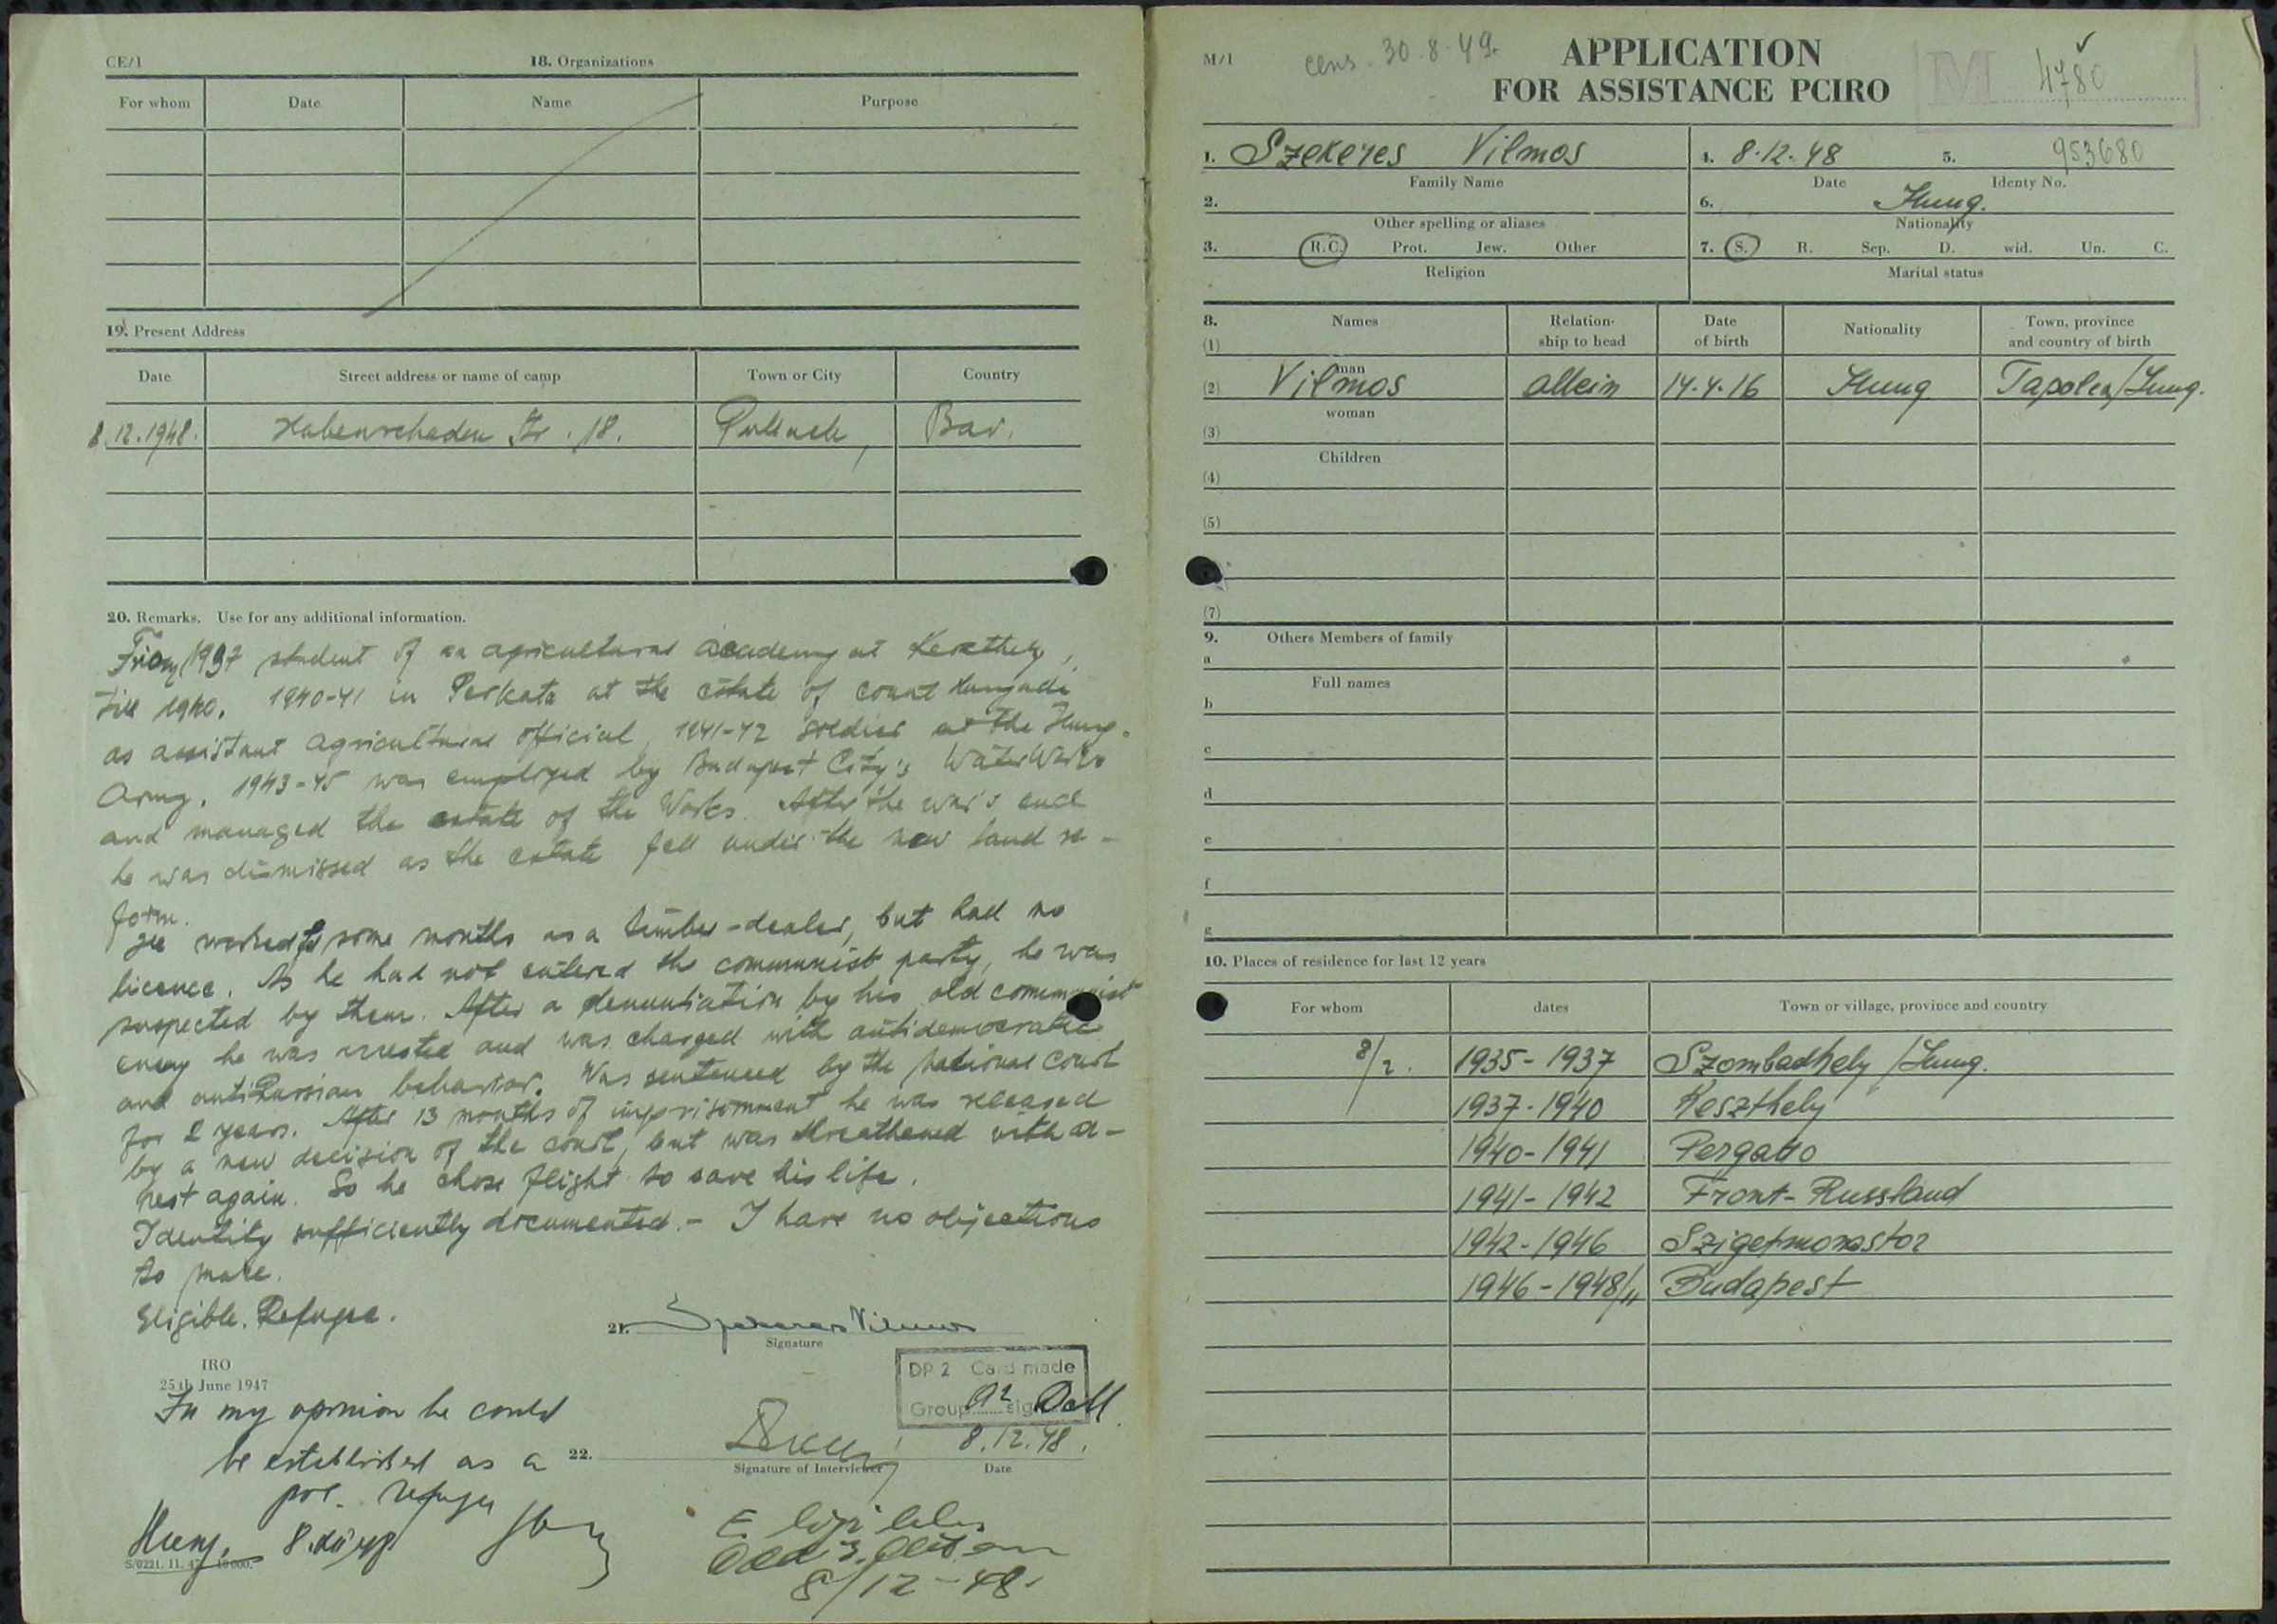 CE/1
18. Organizations
For whom Date Name Purpose
19. Present Address
Date Street address or name of camp Town or City Country
8.12.1948. Habenschaden Str. 18. Pullach, Bav.
20. Remarks. Use for any additional information.
From 1937 student of an agricultural academy at Keszthely,
till 1940. 1940-41 in Perkata at the estate of count Hunyadi
as assistant agricultural official, 1941-42 soldier at the Hung.
Army. 1943-45 was employed by Budapest City's WaterWorks
and managed the estate of the Works. After the war's end
he was dismissed as the estate fell under the new land re-
form.
He worked for some months as a timber-dealer, but had no
licence. As he had not entered the communist party, he was
suspected by them. After a denuntiation by his old communist
enemy he was arrested and was charged with antidemocratic
and antiRussian behavior. Was sentenced by the national court
for 2 years. After 13 months of imprisonment he was released
by a new decision of the court, but was threathened with a-
rest again. So he chose flight to save his life.
Identity sufficiently documented. - I have no objections
to make.
Eligible. Refugee.
21. Szekeres Vilmos
Signature
IRO
25th June 1947
DP 2 Card made
Group A2 sig
In my opinion he could
be established as a
pol. refugee
22. 8.12.48.
Signature of Interviewer Date
Hung. 8.XII 48
S/0221. 11. 47.
8/12-48.
M/1
cens. 30.8.49.
APPLICATION
FOR ASSISTANCE PCIRO
M 4780
1. Szekeres Vilmos 4. 8.12.48 5. 953680
Family Name Date Identy No.
2. 6. Hung.
Other spelling or aliases Nationality
3. R.C. Prot. Jew. Other 7. S. R. Sep. D. wid. Un. C.
Religion Marital status
8. Names Relation- Date Nationality Town, province
(1) ship to head of birth and country of birth
man
(2) Vilmos allein 14.4.16 Hung Tapolca/Hung.
woman
(3)
Children
(4)
(5)
(7)
9. Others Members of family
a
Full names
b
c
d
e
f
g
10. Places of residence for last 12 years
For whom dates Town or village, province and country
8/2. 1935-1937 Szombadhely /Hung.
1937-1940 Keszthely
1940-1941 Pergatto
1941-1942 Front-Russland
1942-1946 Szigetmonostor
1946-1948/11 Budapest